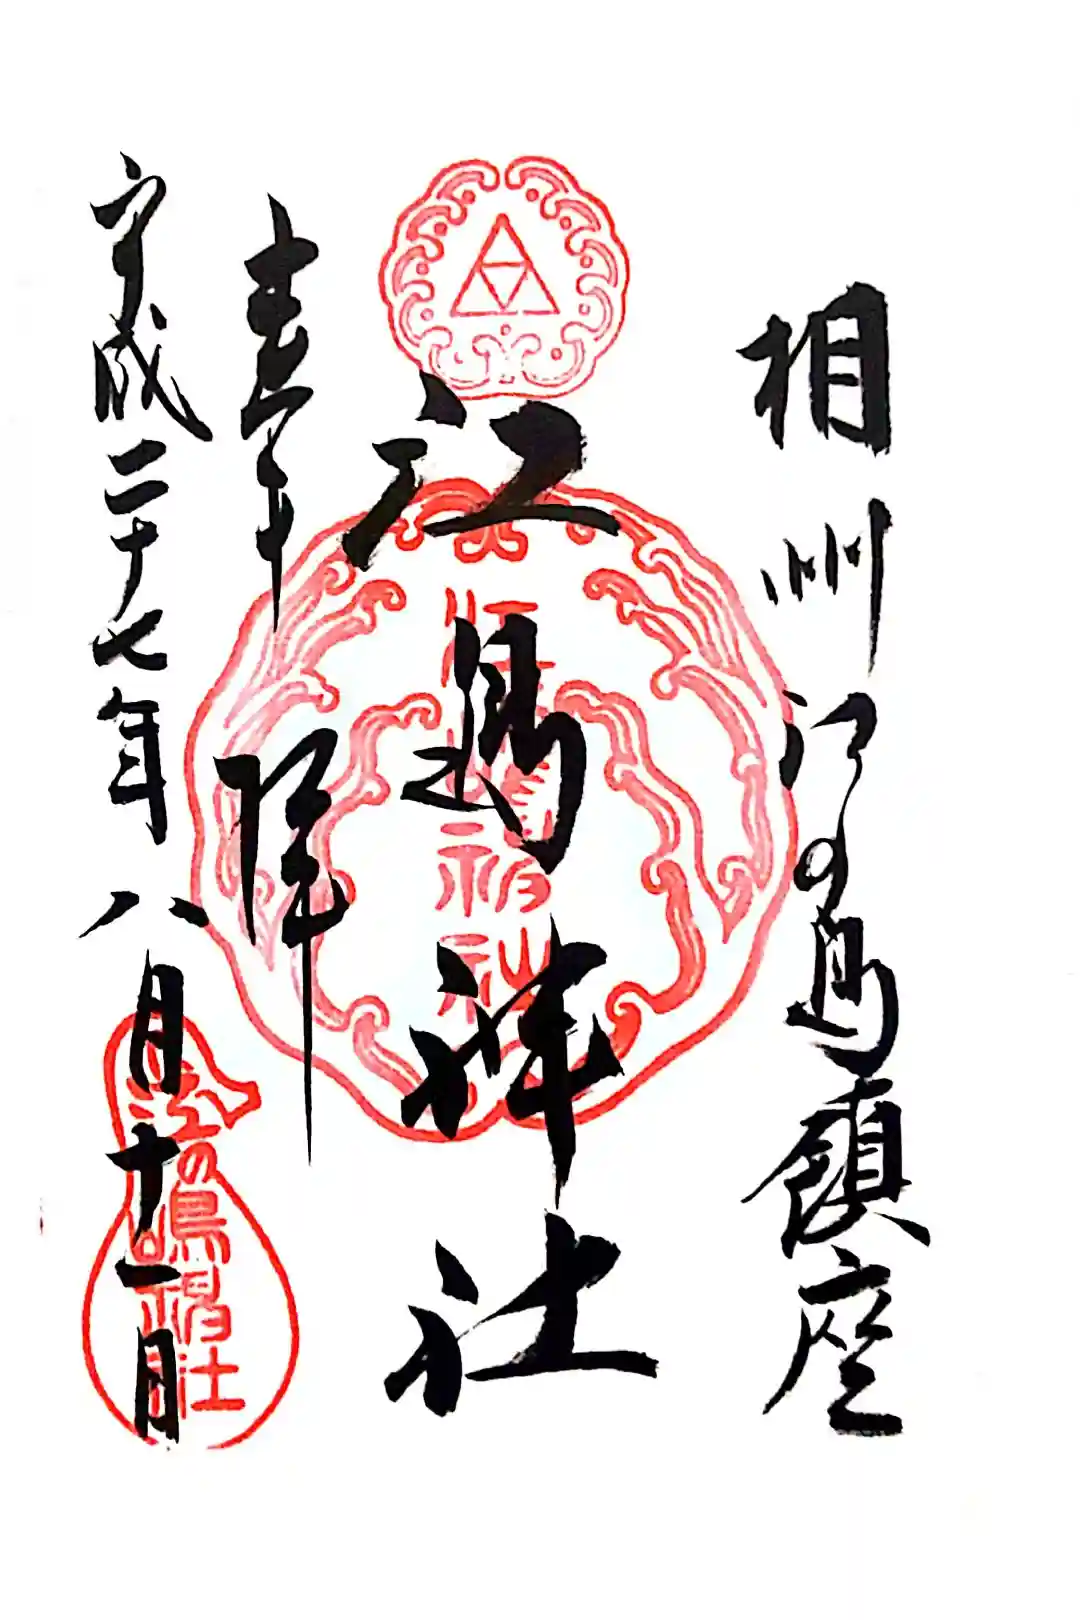 相州江の島鎮座
江島神社
奉拝
平成二十七年八月十一日
江の嶋神社